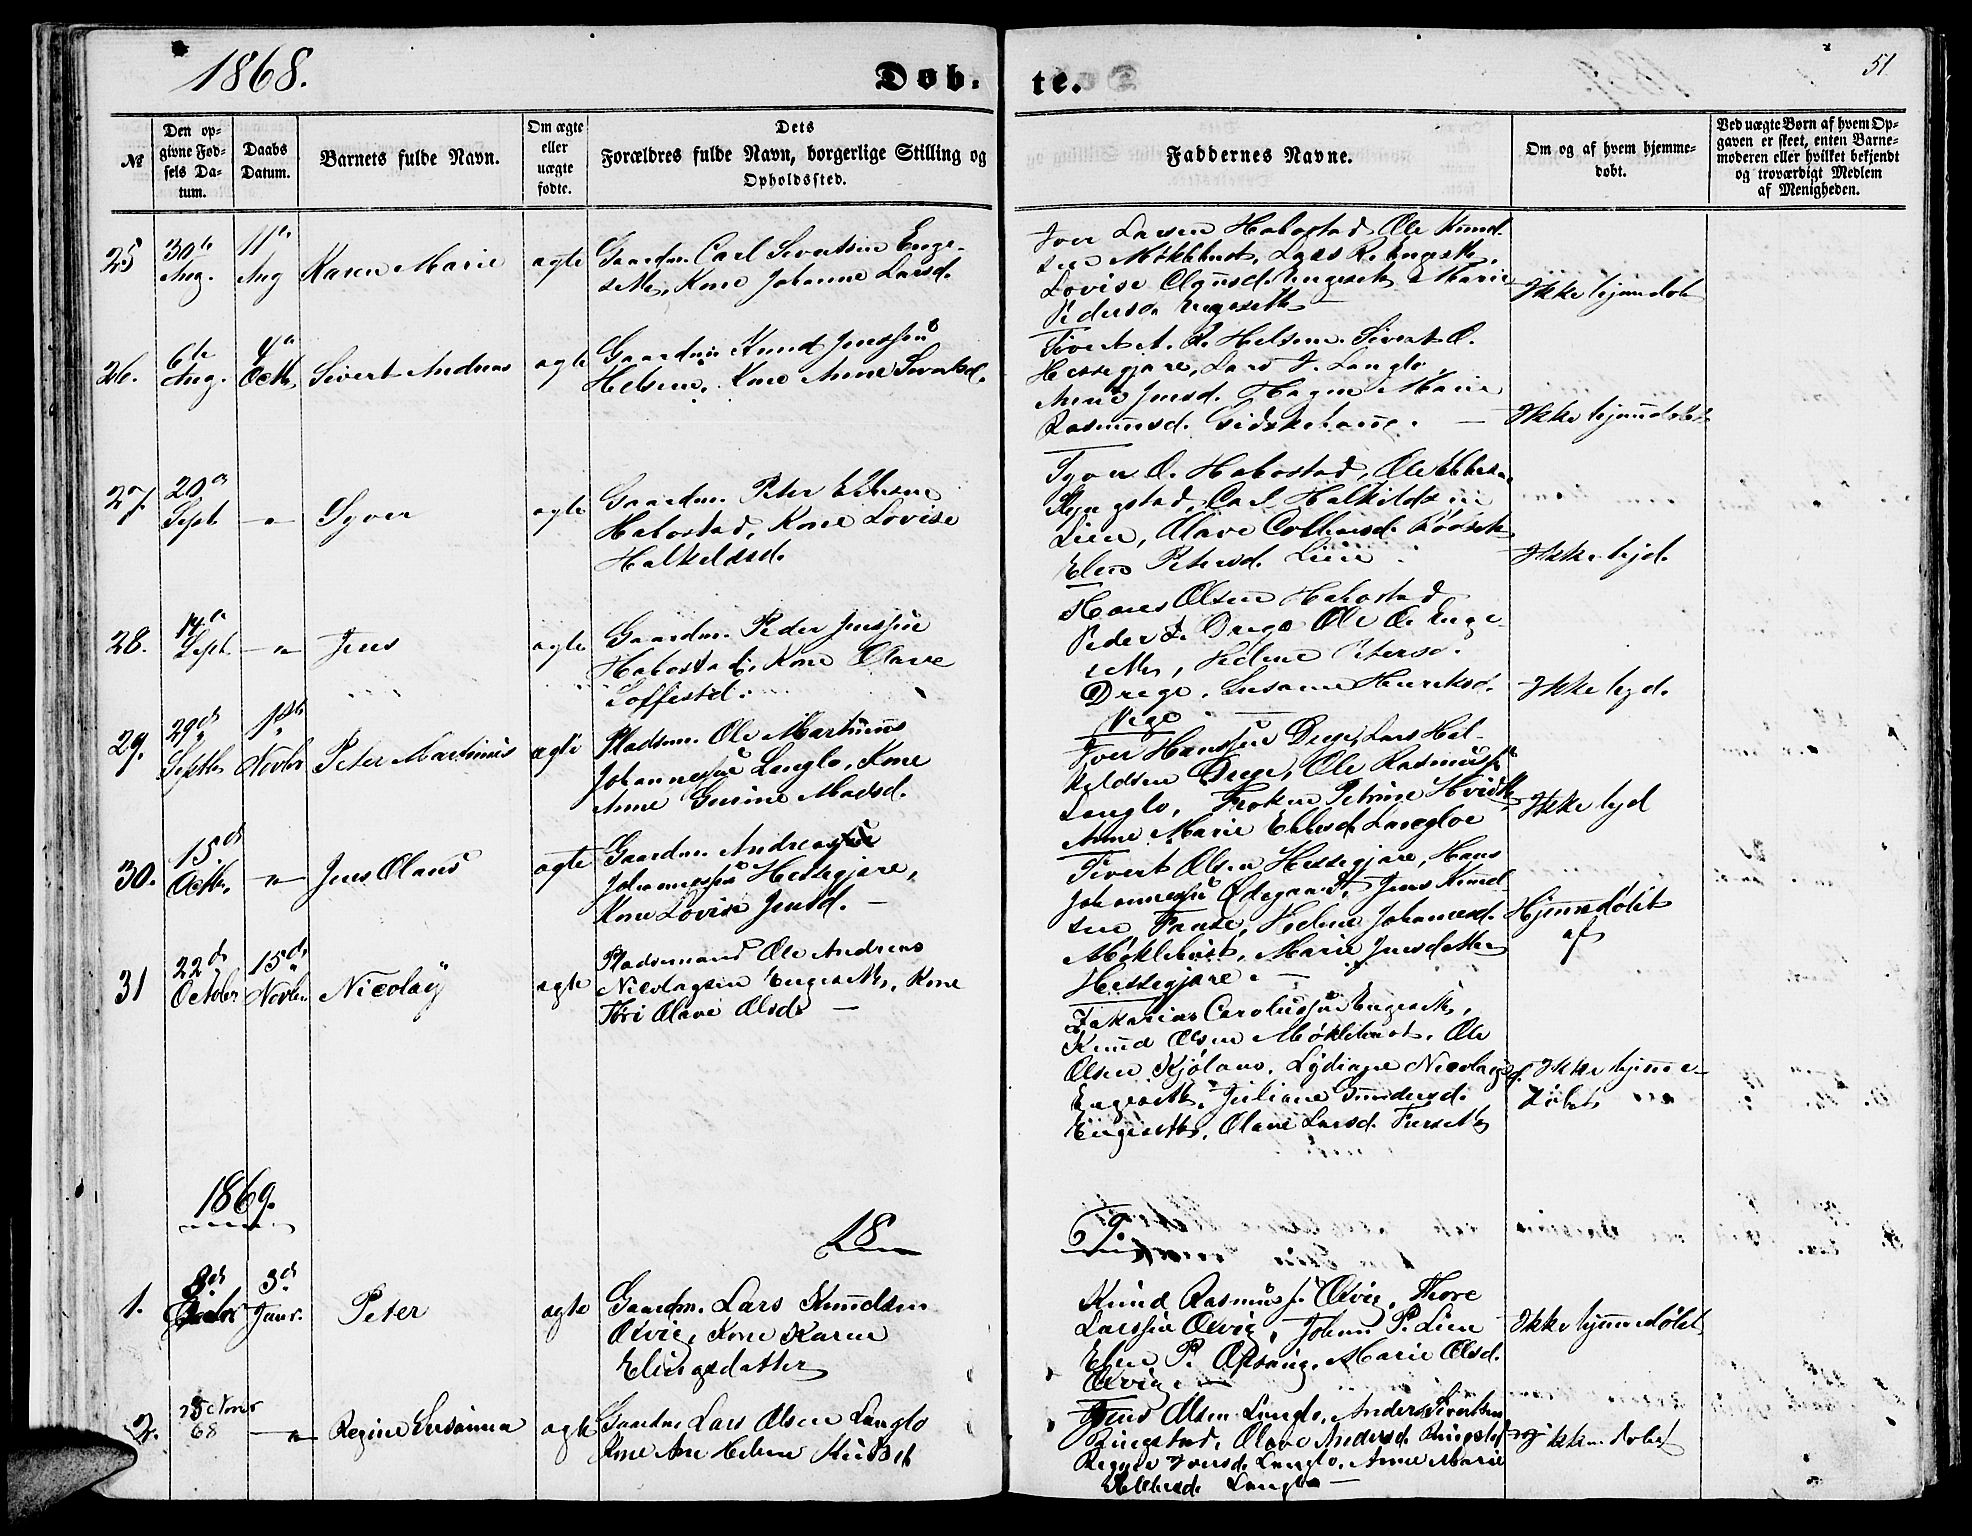 1868.
Døb-
te.
51
№
Den op-
givne Fød-
sels Da-
tum.
Daabs
Datum.
Barnets fulde Navn.
Om ægte
eller
uægte
fødte.
Dets
Forældres fulde Navn, borgerlige Stilling og
Opholdssted.
Faddernes Navne.
Om og af hvem hjemme-
døbt.
Ved uægte Børn af hvem Op-
gaven er skeet, enten Barne-
moderen eller hvilket bekjendt
og troværdigt Medlem
af Menigheden.
25
30te
Aug.
11te
Aug
Karen Marie
ægte
Gaardm. Carl Sivertsen Enge-
seth, Kone Johanne Larsd.
Iver Larsen Habostad, Ole Knud-
sen Møklebust, Lars R. Engeseth,
Lovise Engeseth Marie
Pedersd. Engeseth
Ikke hjemdøbt
26.
6te
Aug.
Octb
Sivert Andreas
ægte
Gaardm. Knud Jenssen
Helsem, Kone Anne Sivertsd.
Sivert A. Helsem. Sivert O.
Hessegjære, Lars J. Langlo,
Anne Jensd. Hagen Marie
Rasmusd. Gidskehaug.
Ikke hjemdøbt
27.
20de
Sept.
Syver
ægte
Gaardm. Peter Ebbesen
Habostad, Kone Lovise
Halkeldsd.
O. Habostad, Ole Ebbesen
Ringstad, Carl Halkildsen
Lien, Olave
Elen Petersd. Lien
Ikke hjd.
28.
14de
Sept.
Jens
ægte
Gaardm. Peder Jenssen
Habostad, Kone Olave
Loffesd.
Hans Olsen Habostad
Peder Drege Ole O. Enge-
seth, Helene Petersd.
Drege, Susanne Henriksd.
Vege
Ikke hjd.
29.
29de
Septb
1ste
Novbr
Peter Martinus
ægte
Pladsm. Ole Martinus
Johannessen Langlo, Kone
Anne Gurine Madsd.
Iver Hanssen Drege, Lars Hal-
keldsen Drege, Ole Rasmuss.
Langlo, Frøken Petrine
Anne Marie Ebbesd. Langloe
Ikke hjd
30.
15de
Octbr.
Jens Olaus
ægte
Gaardm. Andreas
Johannessen Hessegjære,
Kone Lovise Jensd.
Sivert Olsen Hessegjære, Hans
Johannessen Ødegaard, Jens Knud-
sen Helene Johannesd.
Møklebust, Marie Jensdatter
Hessegjære.
Hjemdøbt
af
31
22de
Octobr
15de
Novbr
Nicolay
ægte
Pladsmand Ole Andreas
Nicolaysen Engeseth, Kone
Olave Olsd.
Zakarias Carolussen Engeseth,
Knud Olsen Møklebust. Ole
Olsen Kjølaas. Lydiane Nicolayd.
Engeseth, Juliane Gundersd.
Engeseth, Olave Larsd.
Ikke hjemme-
døbt
1869.
18
69.
1.
8de
Octbr
3de
Janr.
Peter
ægte
Gaardm. Lars Knudsen
Oxvig, Kone Karen
Elingsdatter
Knud Rasmuss. Oxvig, Thore
Larssen Oxvig, Johan P. Lien
Elen P. Opsang, Marie Olsd.
Oxvig
Ikke hjemmedøbt
2.
68
Regine Susanna
ægte
Gaardm Lars Olsen Langlo
Kone Ane Helene
Jens Olsen Langlo, Anders Sivertsen
Ringstad, Olave Andersd. Ringstad
Regine Iversd. Langlo, Anne Marie
Ebbesd. Langlo